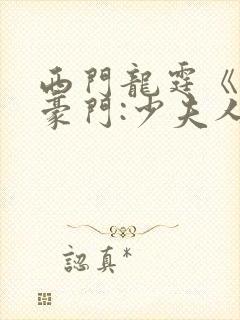 西門龍霆《
豪門:少夫人
認真*